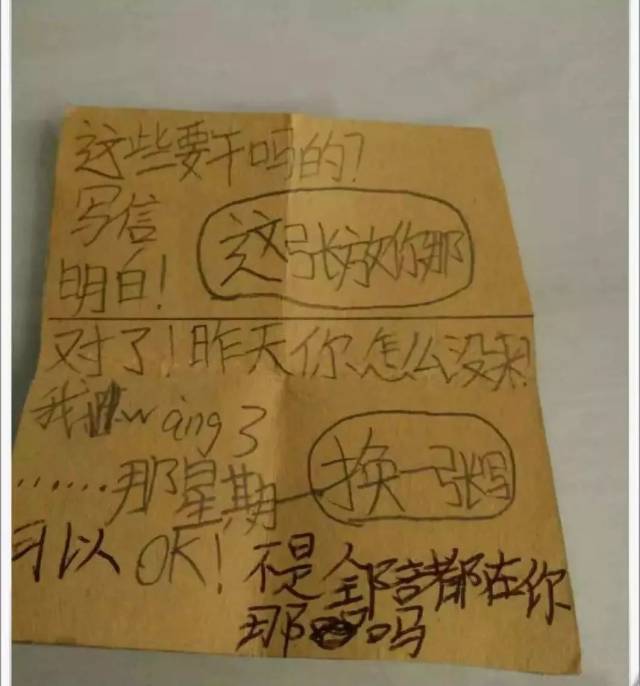 这些要干吗的?
写信
明白!
这张放你那
对了!昨天你怎么没来!
我 wàng 3
......那星期一
换一张吗
可以 OK! 不是全部都在你
那 吗